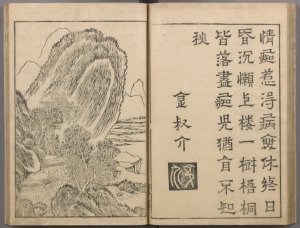 情癡惹得病無休終日
昏沉懶上楼一樹梧桐
皆落盡癡児猶自不知
秋
金叔介